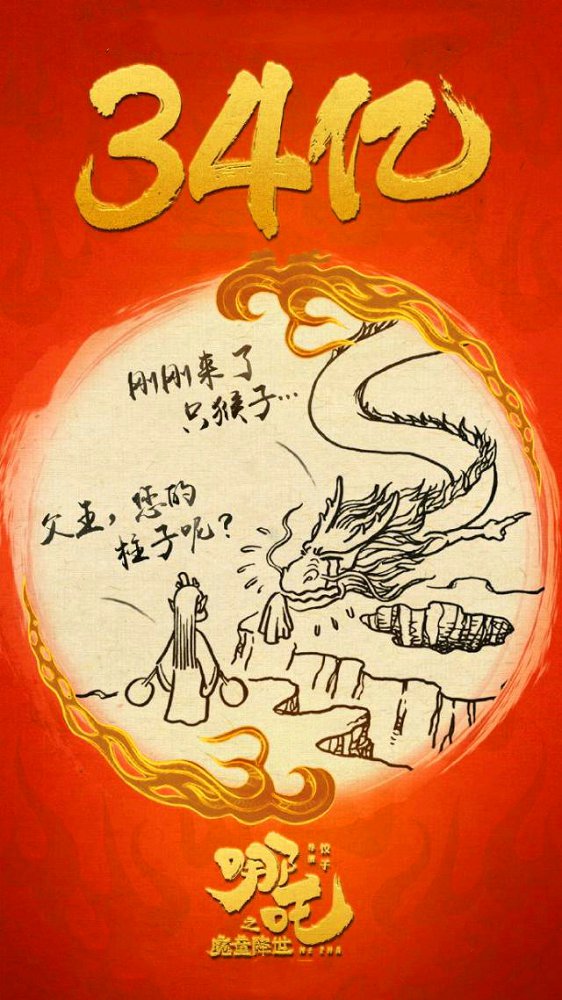 34亿
刚刚来了
只猴子…
父王，您的
柱子呢？
导演
饺子
哪吒
之
魔童降世
NE ZHA